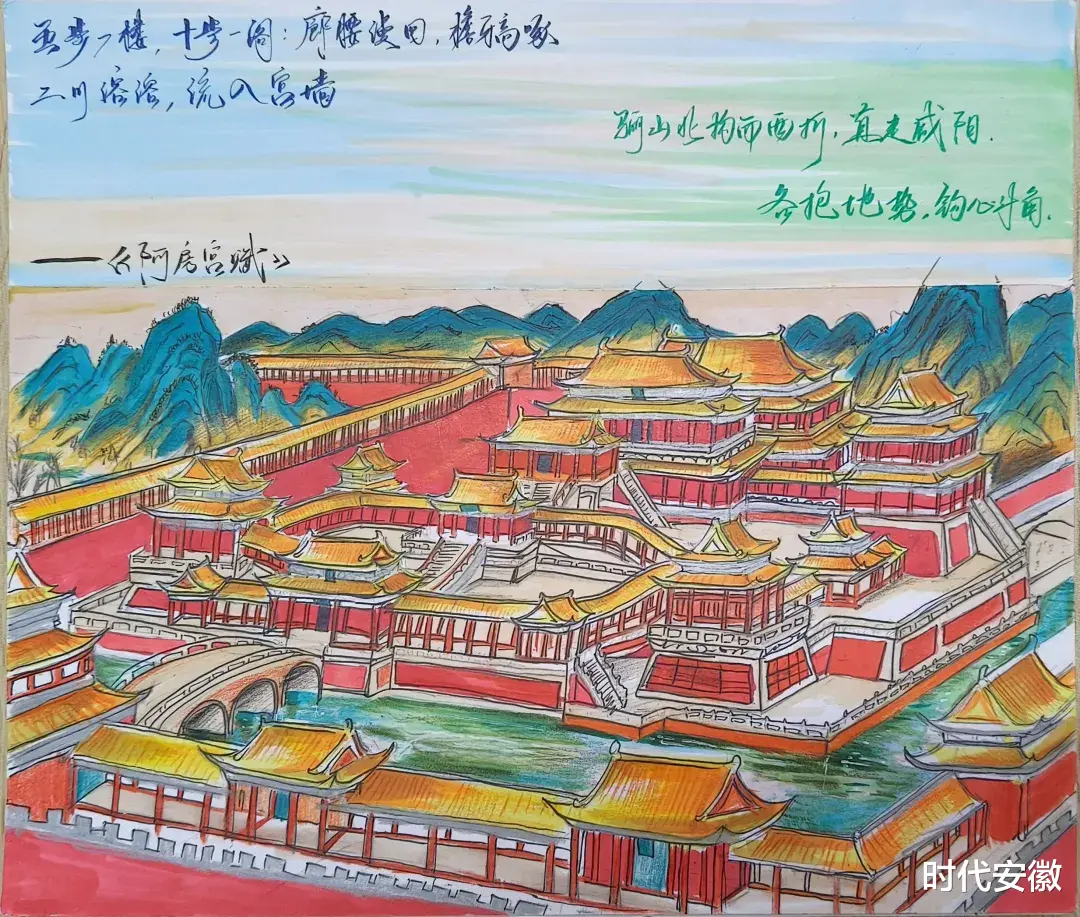 五步一楼，十步一阁：廊腰缦回，檐牙高啄
二川溶溶，流入宫墙
骊山北构而西折，直走咸阳.
各抱地势，钩心斗角.
——《阿房宫赋》
时代安徽